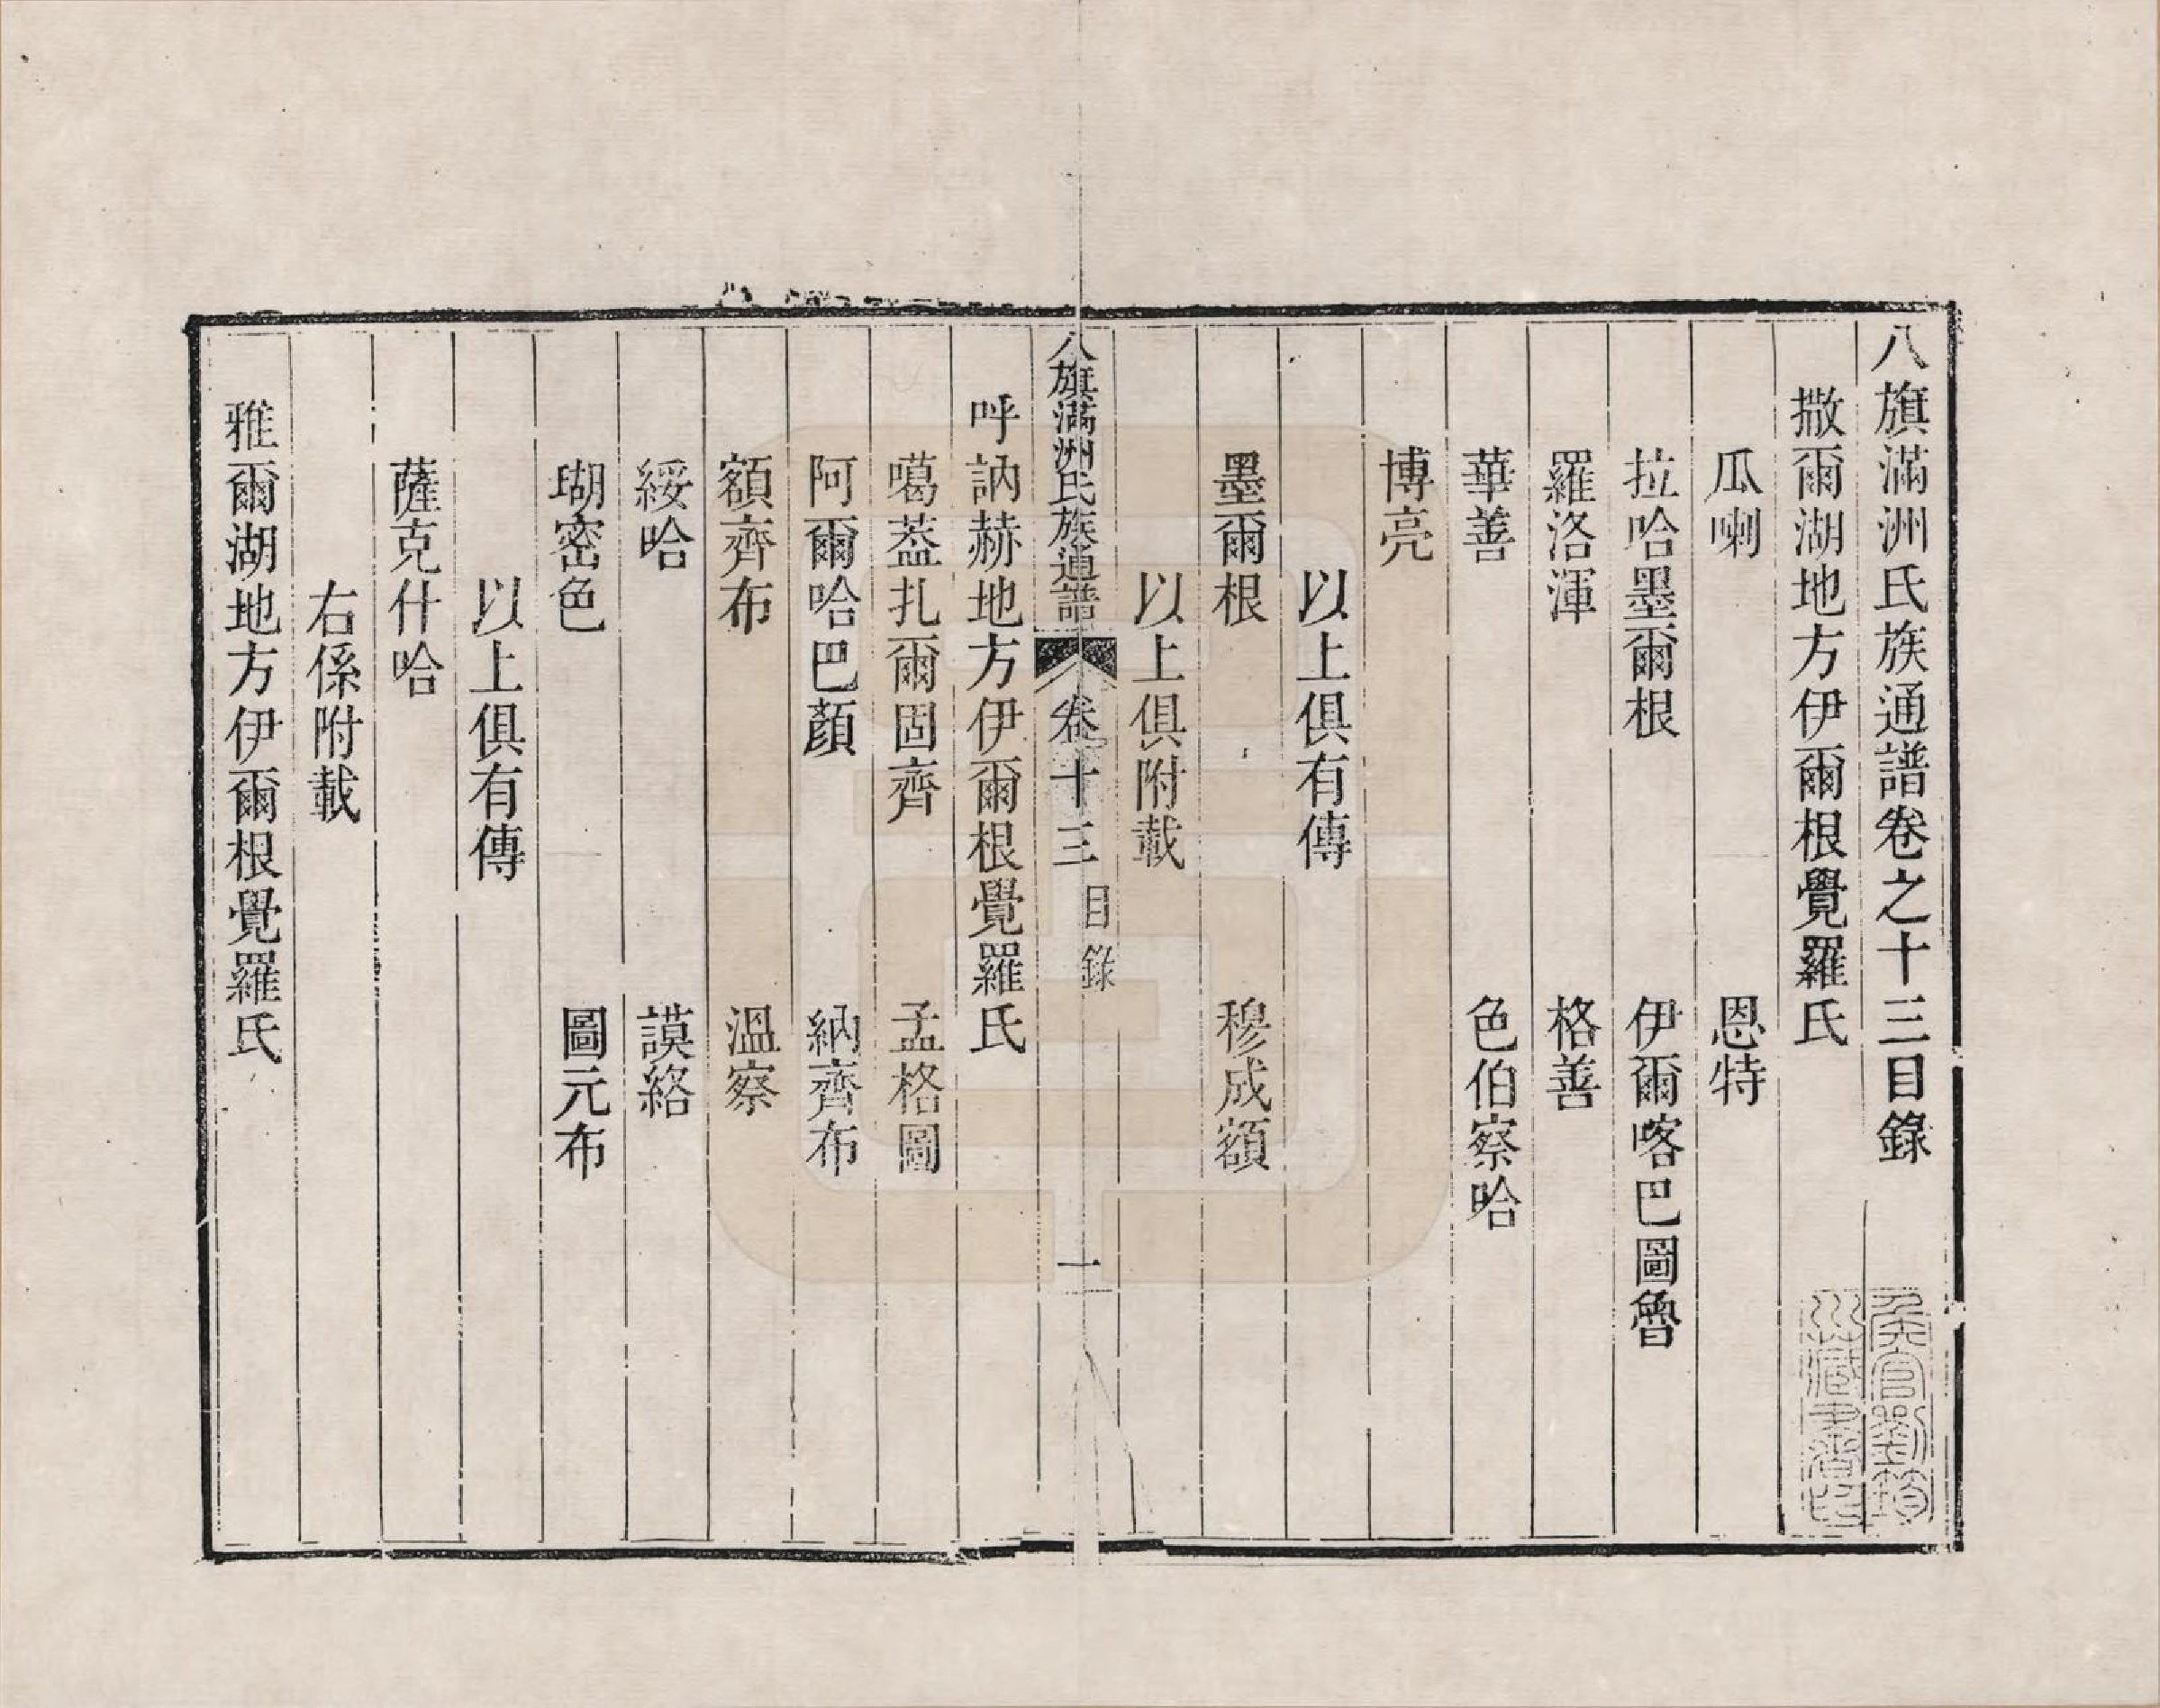 八旗滿洲氏族通譜卷之十三目錄
撒爾湖地方伊爾根覺羅氏
瓜喇　恩特
拉哈墨爾根　伊爾喀巴圖魯
羅洛渾　格善
華善　色伯察哈
博亮
以上俱有傳
墨爾根　穆成額
以上俱附載
八旗滿洲氏族通譜　卷十三　目錄　一
呼訥赫地方伊爾根覺羅氏
噶蓋扎爾固齊　孟格圖
阿爾哈巴顏　納齊布
額齊布　溫察
綏哈　謨絡
瑚密色　圖元布
以上俱有傳
薩克什哈
右係附載
雅爾湖地方伊爾根覺羅氏